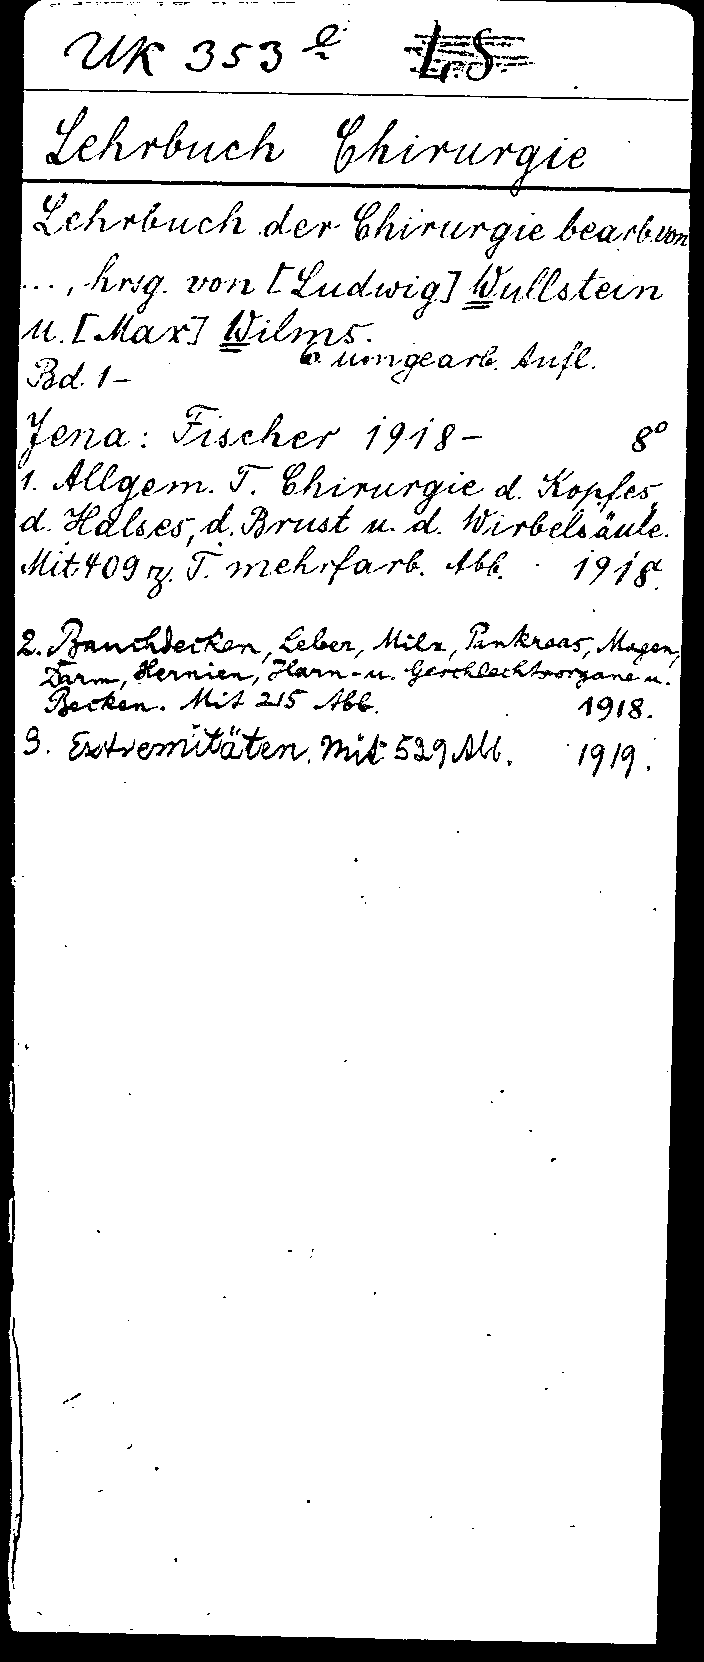 UK 353 e L.S.
Lehrbuch Chirurgie
Lehrbuch der Chirurgie bearb. von
..., hrsg. von [Ludwig] Wullstein
u. [Max] Wilms.
6. umgearb. Aufl.
Bd. 1-
Jena: Fischer 1918- 8°
1. Allgem. T. Chirurgie d. Kopfes,
d. Halses, d. Brust u. d. Wirbelsäule.
Mit 409 z. T. mehrfarb. Abb. 1918.
2. Bauchdecken, Leber, Milz, Pankreas, Magen,
Darm, Hernien, Harn- u. Geschlechtsorgane u.
Becken. Mit 215 Abb. 1918.
3. Extremitäten. Mit 529 Abb. 1919.